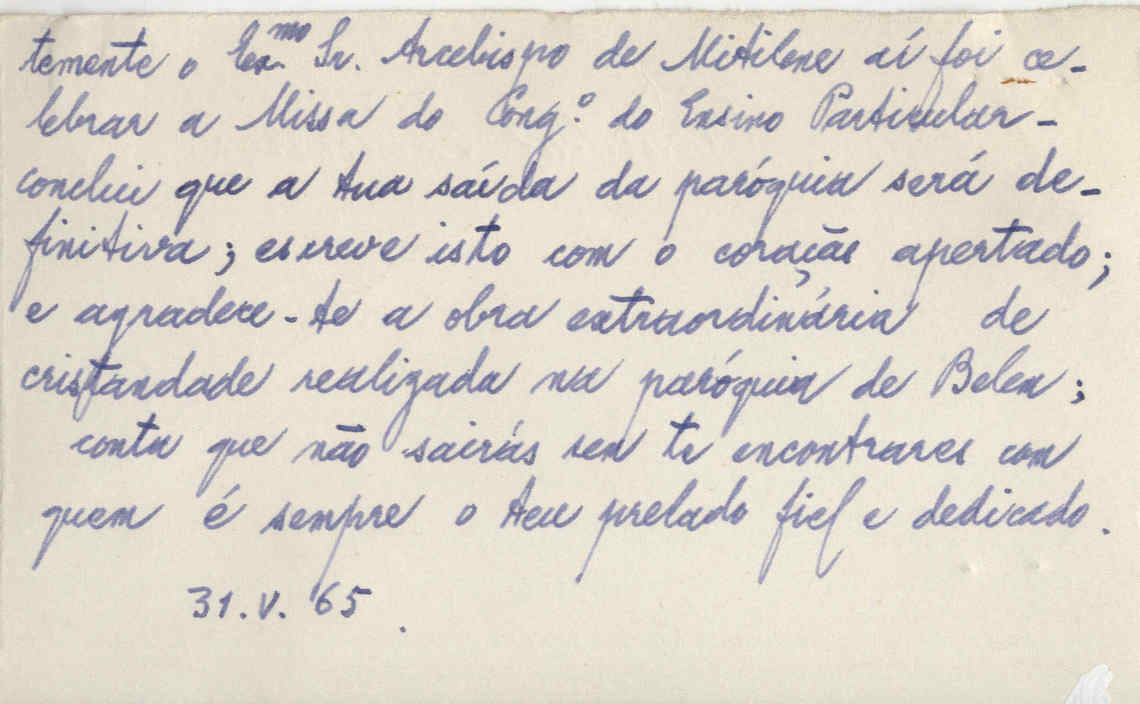 temente o Ex.mo Sr. Arcebispo de Mitilene aí foi ce-
lebrar a Missa do Cong.º do Ensino Particular -
conclui que a tua saída da paróquia será de-
finitiva; escreve isto com o coração apertado;
e agradece-te a obra extraordinária de
cristandade realizada na paróquia de Belem;
conta que não sairás sem te encontrares com
quem é sempre o teu prelado fiel e dedicado.
31.V.65.